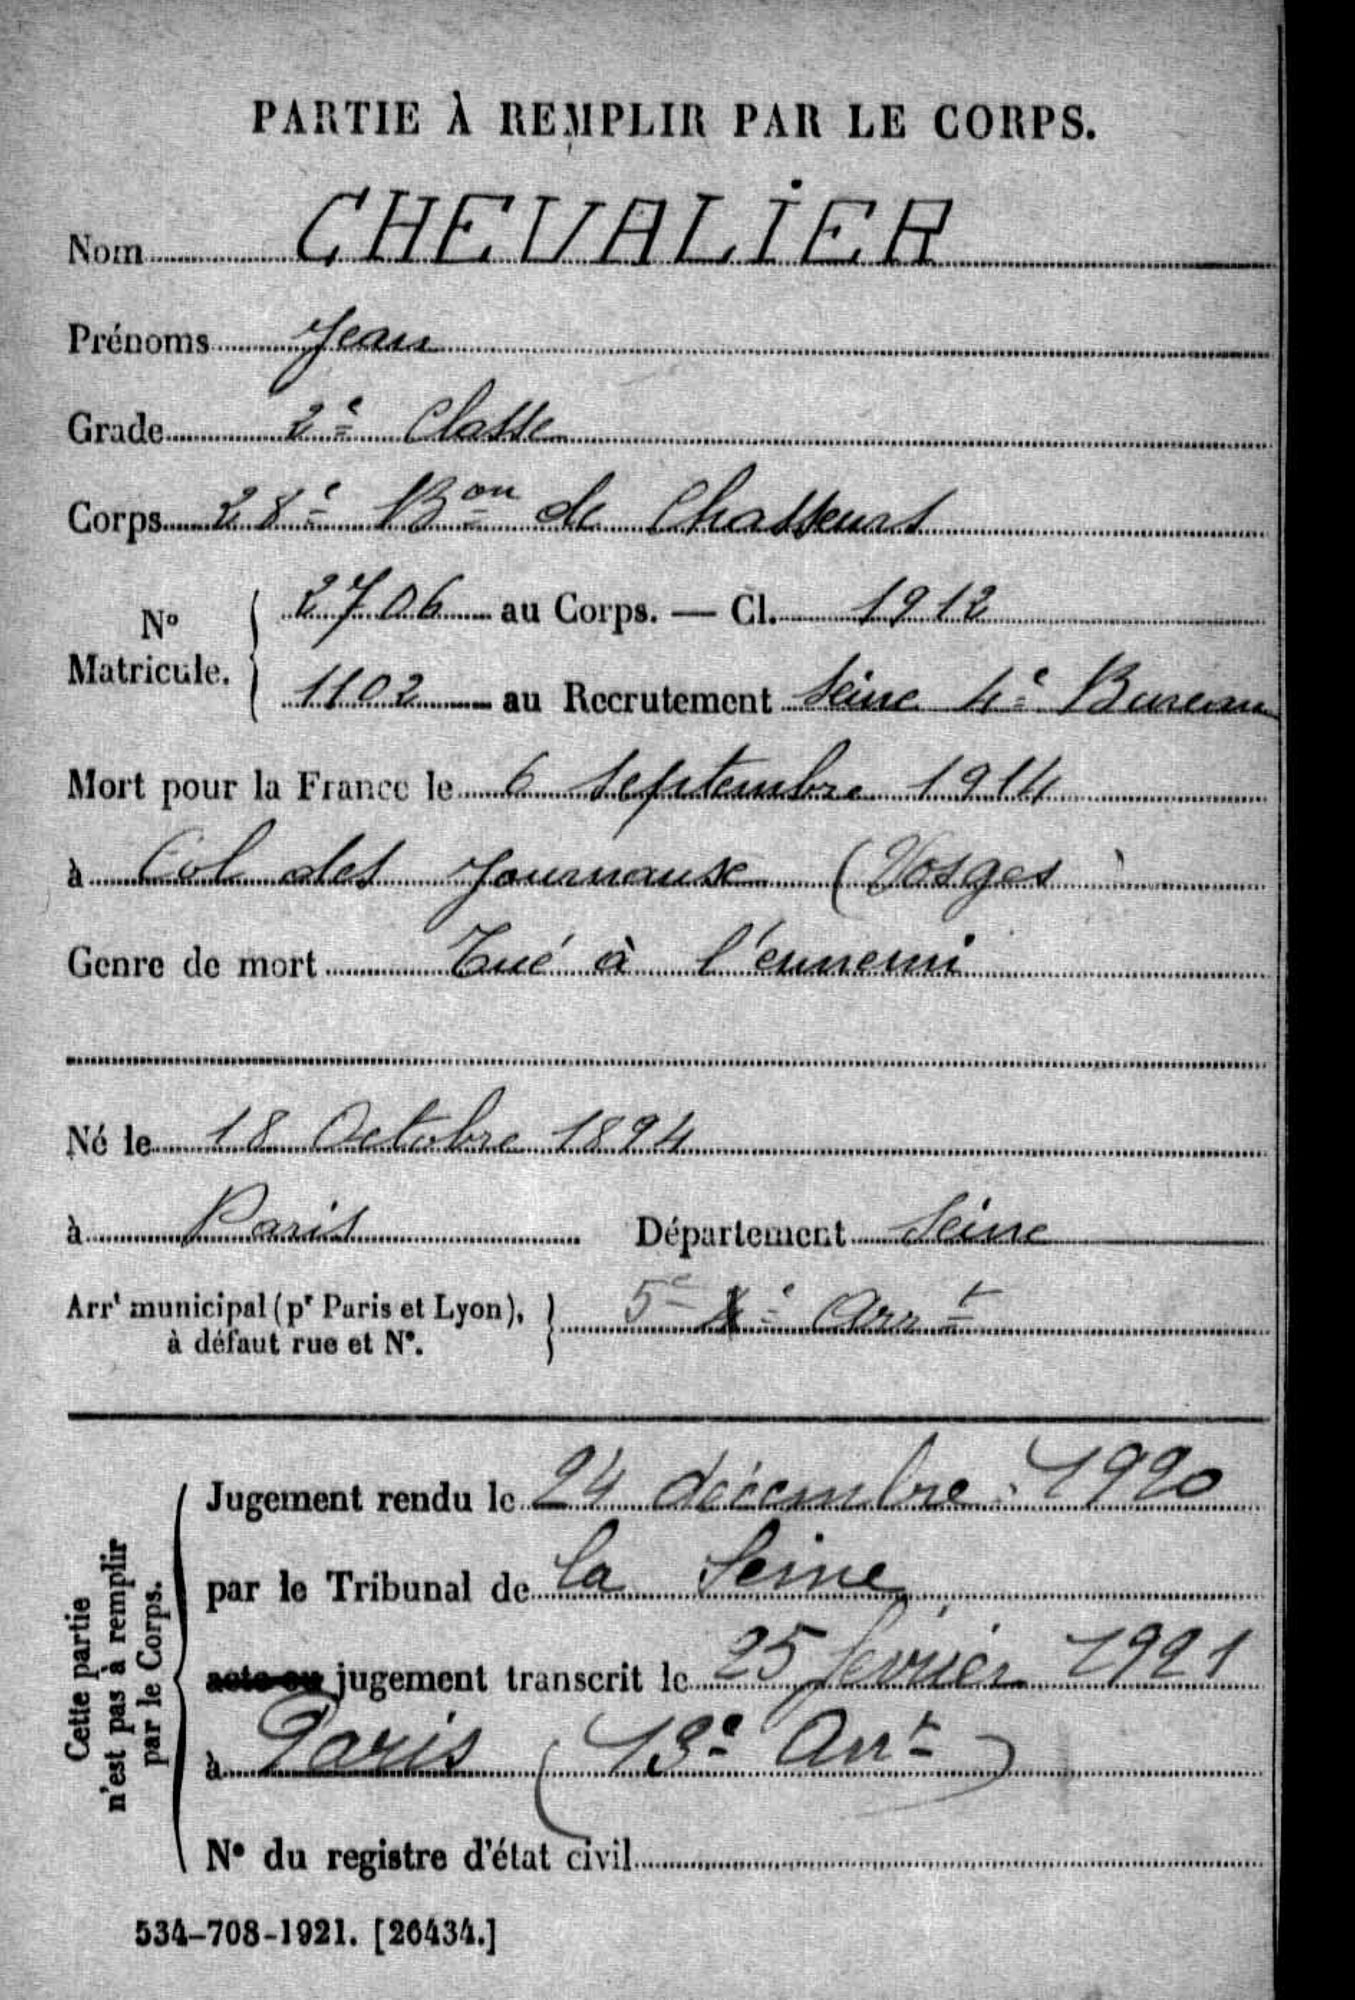 PARTIE À REMPLIR PAR LE CORPS.
Nom CHEVALIER
Prénoms Jean
Grade 2e Classe
Corps 28e Bon de Chasseurs
No Matricule. { 2706 au Corps. — Cl. 1912
1102 au Recrutement Seine 4e Bureau
Mort pour la France le 6 Septembre 1914
à Col des Journaux (Vosges)
Genre de mort Tué à l'ennemi
Né le 18 Octobre 1894
à Paris Département Seine
Arrt municipal (pr Paris et Lyon), à défaut rue et No. } 5e 4e Arrt
Cette partie n'est pas à remplir par le Corps.
Jugement rendu le 24 décembre 1920
par le Tribunal de la Seine
acte ou jugement transcrit le 25 février 1921
à Paris (13e Arrt)
No du registre d'état civil
534-708-1921. [26434.]